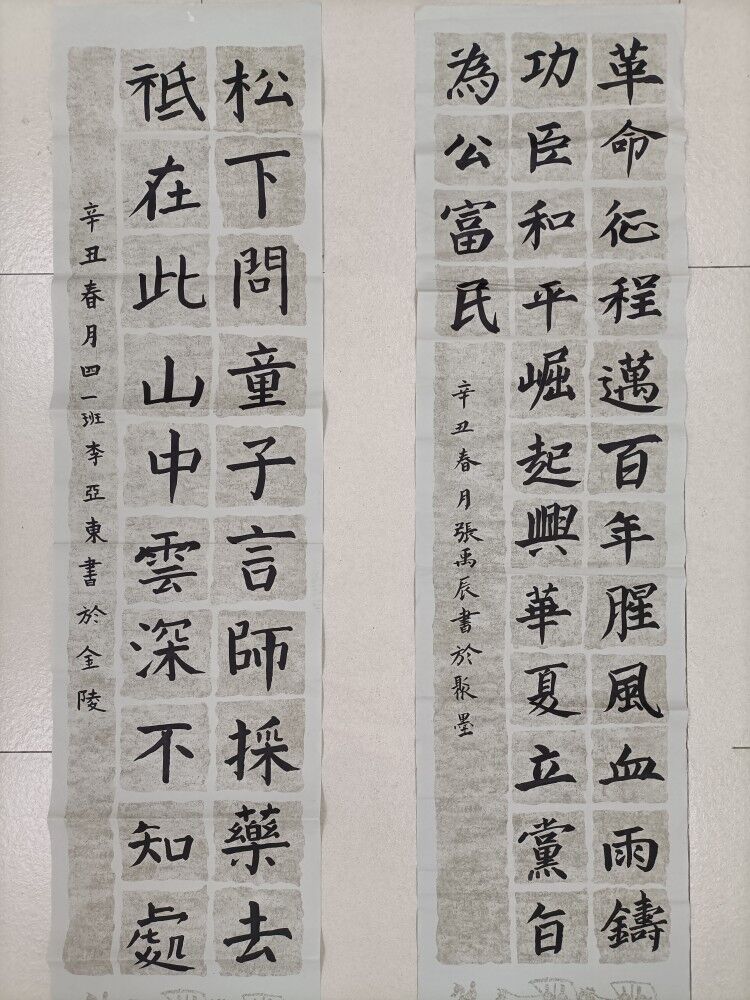 革命征程邁百年腥風血雨鑄
功臣和平崛起興華夏立黨旨
為公富民
辛丑春月張禹辰書於聚墨
松下問童子言師採藥去
祗在此山中雲深不知處
辛丑春月四一班李亞東書於金陵